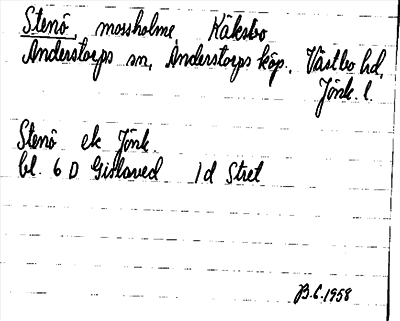 Stenö, mossholme, Kåksbo
Anderstorps sn, Anderstorps köp. Västbo hd,
Jönk. l.
Stenö ek Jönk.
bl. 6 D Gislaved 1d Stret
B.L. 1958